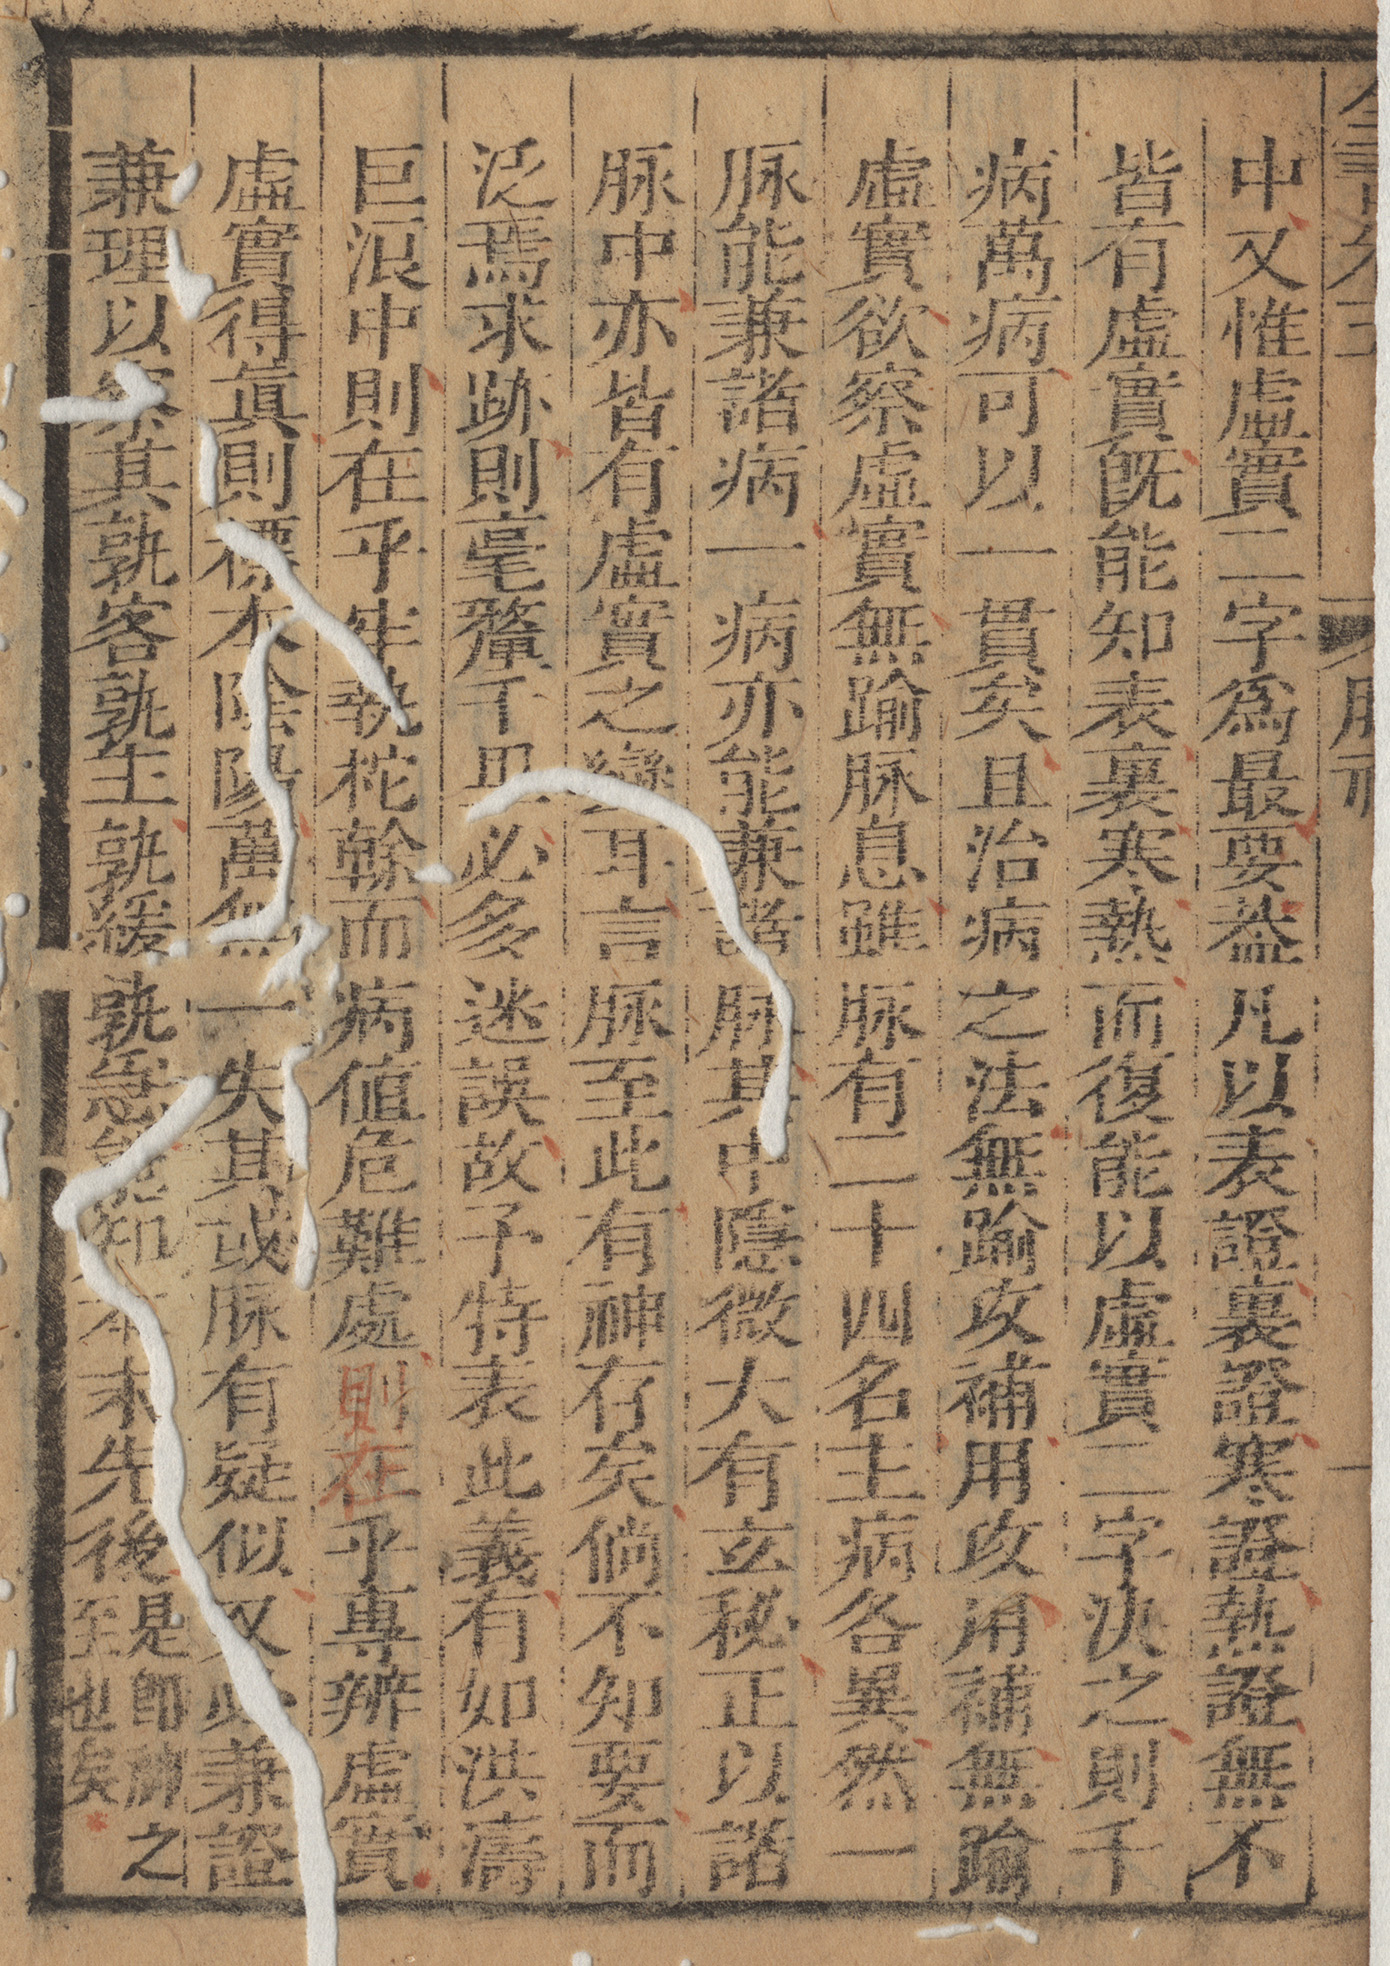 中又惟虛實二字爲最要葢凡以表證裏證寒證熱證無不
皆有虛實旣能知表裏寒熱而復能以虛實二字決之則千
病萬病可以一貫矣且治病之法無踰攻補用攻用補無踰
虛實欲察虛實無踰脉息雖脉有二十四名主病各異然一
脉能兼諸病一病亦能兼諸脉其中隱微大有玄秘正以諸
脉中亦皆有虛實之變耳言脉至此有神存矣倘不知要而
泛焉求跡則毫釐千里必多迷誤故予特表此義有如洪濤
巨浪中則在乎牢執柁幹而病值危難處則在乎專辨虛實
虛實得眞則標本陰陽萬無一失其或脉有疑似又必兼證
兼理以察其孰客孰主孰緩孰急能知本末先後是卽神之
至也矣